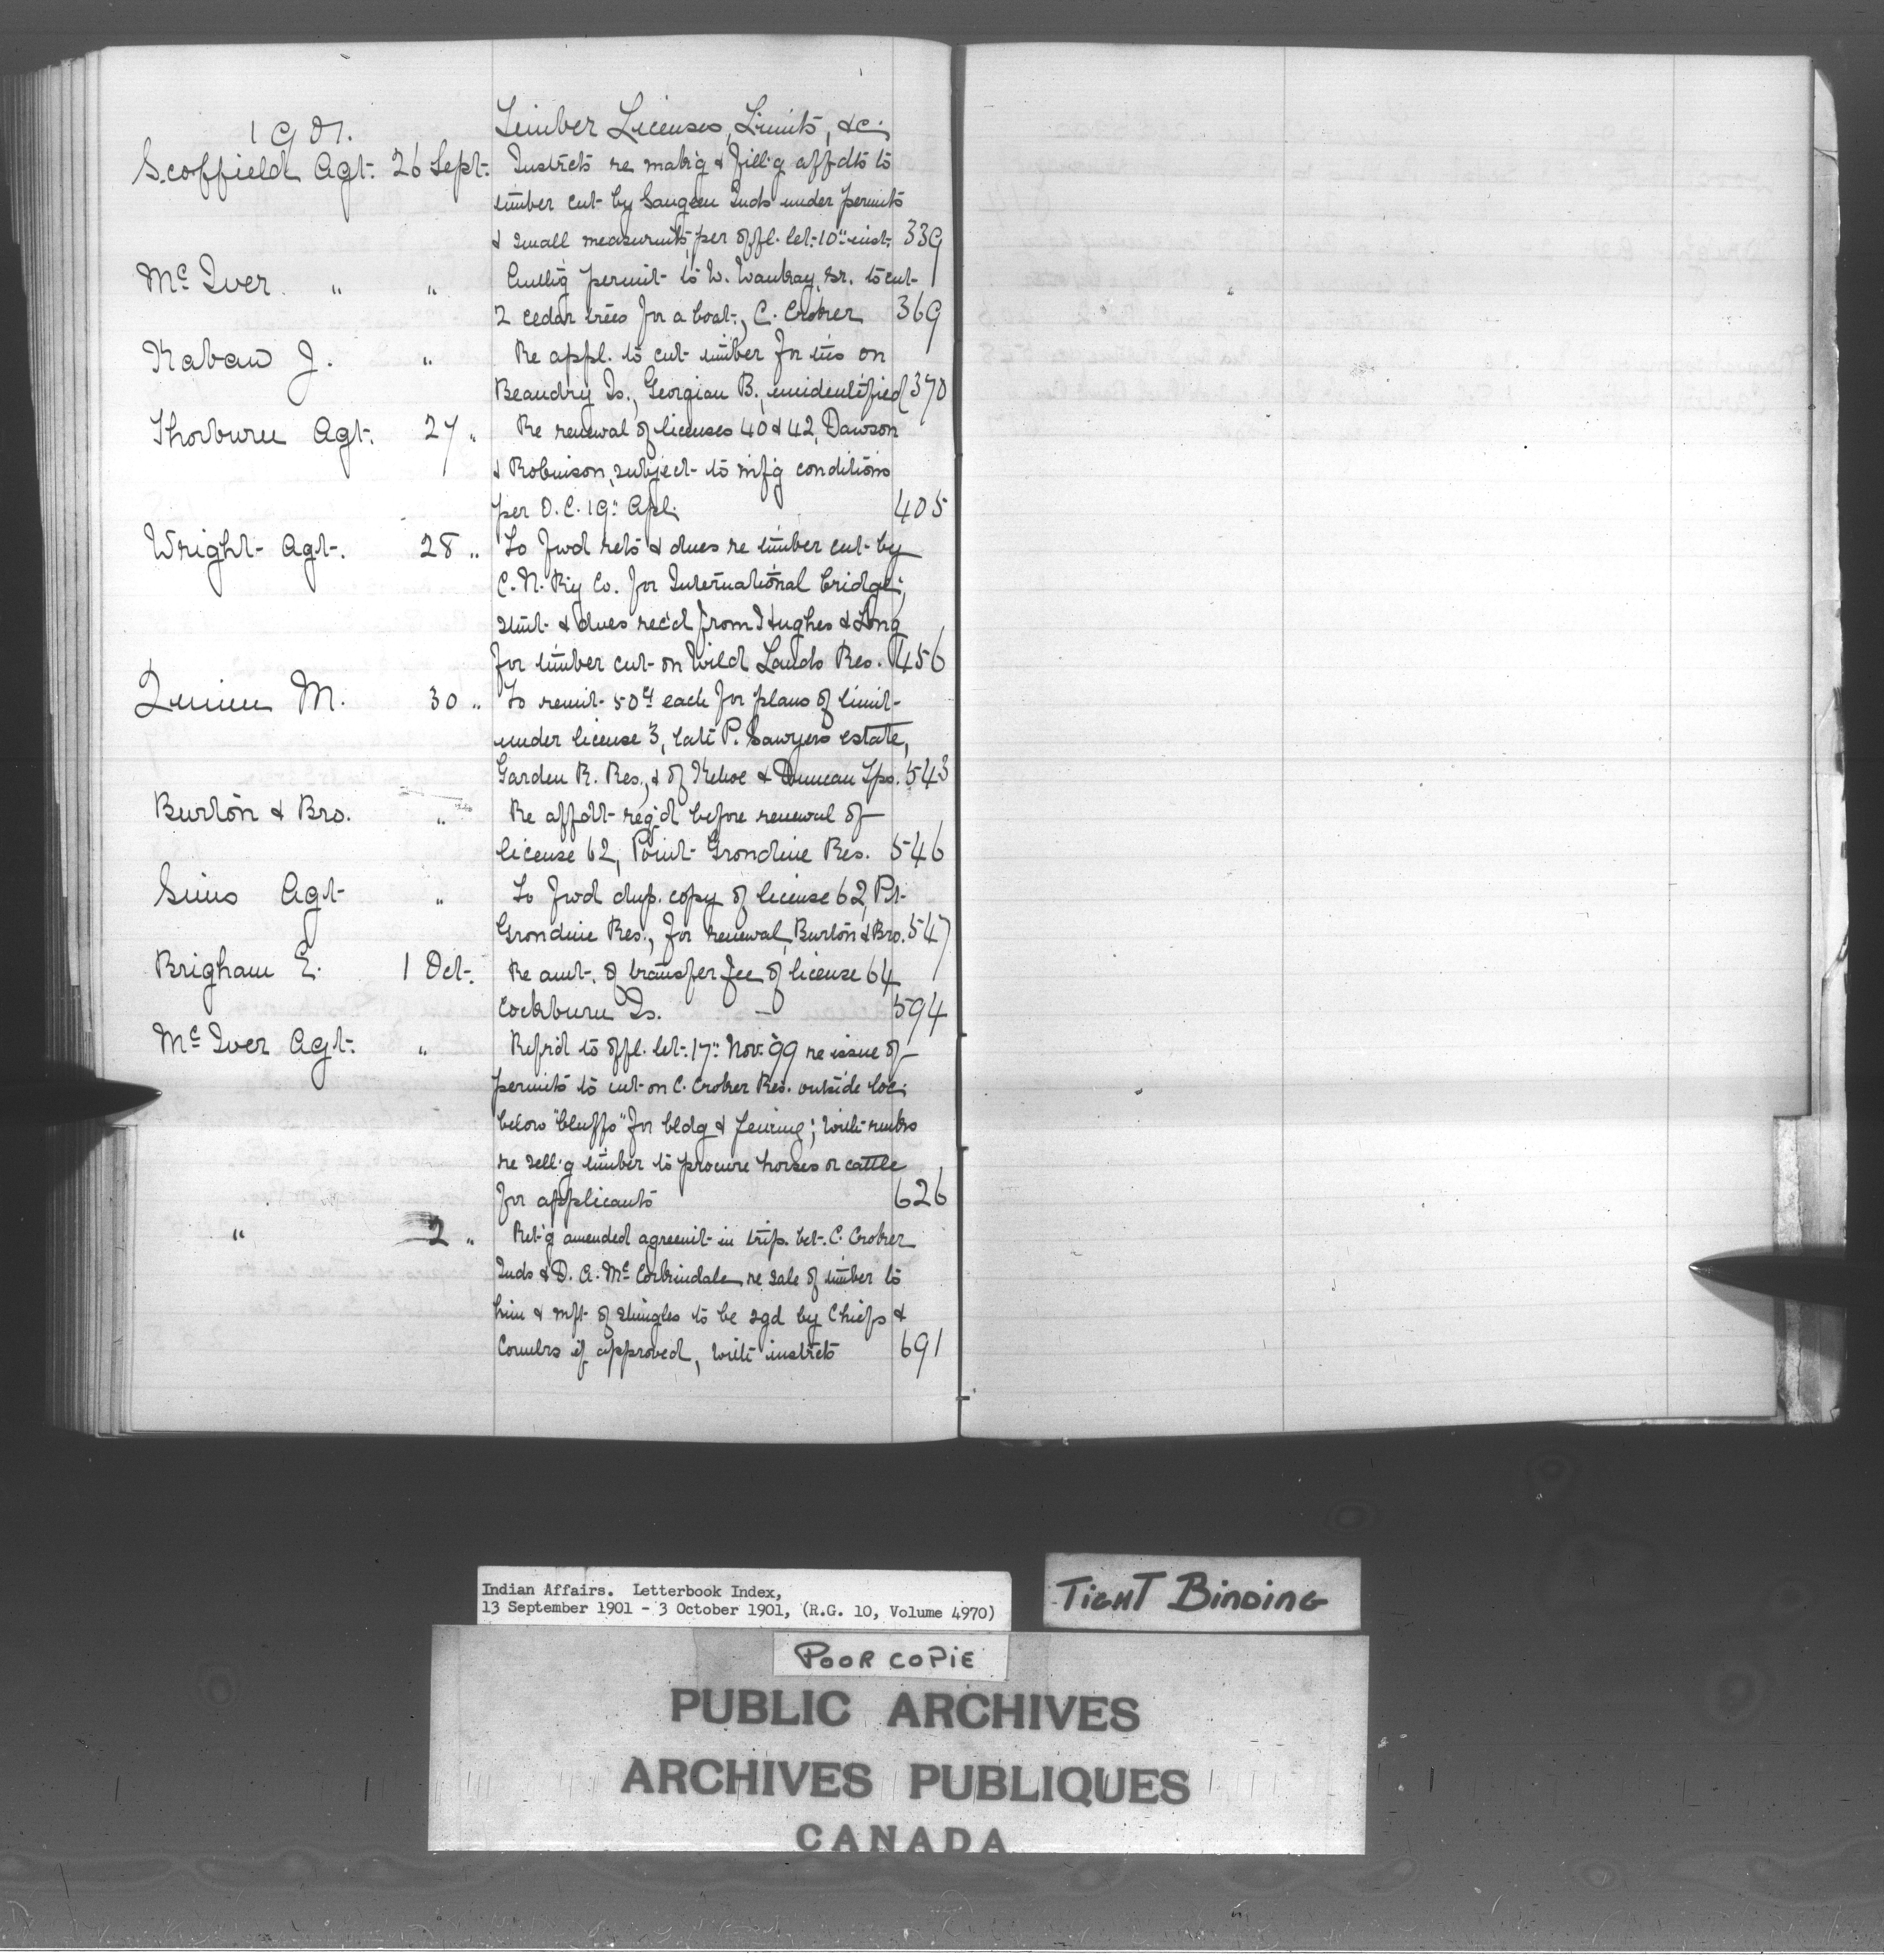 1901.
Timber Licenses, Limits, &c.
Scoffield Agt. 26 Sept. Instrcts re mak'g & fill'g affdts to
timber cut by Saugeen Inds under permits
& small measurmts, per offl. let. 10" inst. 339
McIver " " Cutt'g permit to W. Waukay, Sr. to cut
2 cedar trees for a boat, C. Croker 369
Kabaw J. " Re appl. to cut timber for ties on
Beaudry Is., Georgian B., unidentified 370
Thorburn Agt. 27 " Re renewal of licenses 40 & 42, Dawson
& Robinson, subject to mf'g conditions
per O.C. 19" Apl. 405
Wright Agt. 28 " To fwd rets & dues re timber cut by
C. N. Ry Co. for International bridge;
stmt & dues rec'd from Hughes & Long
for timber cut on Wild Lands Res. 456
Quinn M. 30 " To remit 50c each for plans of limit
under license 3, late P. Sawyers estate,
Garden R. Res., & of Kehoe & Duncan Tps. 543
Burton & Bro. " Re affdt req'd before renewal of
license 62, Point Grondine Res. 546
Sims Agt " To fwd dup. copy of license 62, Pt.
Grondine Res., for renewal, Burton & Bro. 547
Brigham E. 1 Oct. Re amt. of transfer fee of license 64
Cockburn Is. 594
McIver Agt. " Refr'd to offl. let. 17" Nov. '99 re issue of
permits to cut on C. Croker Res. outside loc.
below "bluffs" for bldg & fencing; with rmks
re sell'g timber to procure horses or cattle
for applicants 626
" 2 " Ret'g amended agreemt in trip. bet. C. Croker
Inds & D. A. McCorkindale re sale of timber to
him & mft of shingles to be sgd by Chiefs &
Counclrs if approved, with instrcts 691
Indian Affairs. Letterbook Index,
13 September 1901 - 3 October 1901, (R.G. 10, Volume 4970)
TIGHT BINDING
POOR COPIE
PUBLIC ARCHIVES
ARCHIVES PUBLIQUES
CANADA